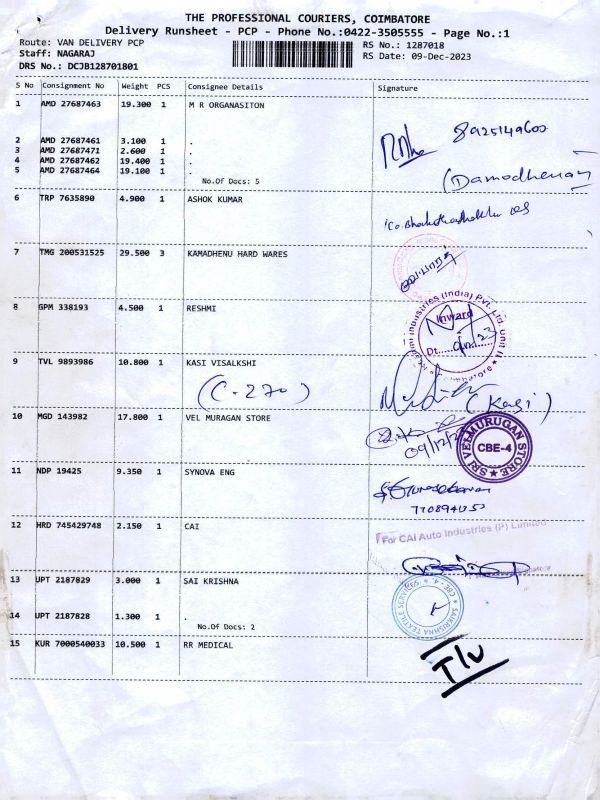 THE PROFESSIONAL COURIERS, COIMBATORE
Delivery Runsheet - PCP - Phone No.:0422-3505555 - Page No.:1
Route: VAN DELIVERY PCP
RS No.: 1287018
Staff: NAGARAJ
RS Date: 09-Dec-2023
DRS No.: DCJB128701801
S No Consignment No Weight PCS Consignee Details Signature
1 AMD 27687463 19.300 1 M R ORGANASITON
2 AMD 27687461 3.100 1 .
3 AMD 27687471 2.600 1 .
4 AMD 27687462 19.400 1 .
5 AMD 27687464 19.100 1 .
No.Of Docs: 5
(Damodhenan)
6 TRP 7635890 4.900 1 ASHOK KUMAR
7 TMG 200531525 29.500 3 KAMADHENU HARD WARES
8 GPM 338193 4.500 1 RESHMI
Industries (India) Pvt. Ltd. Unit II
Inward
9 TVL 9893986 10.800 1 KASI VISALKSHI
(C-270)
(Kasi)
10 MGD 143982 17.800 1 VEL MURAGAN STORE
09/12/23
SRI VELMURUGAN STORE
CBE-4
11 NDP 19425 9.350 1 SYNOVA ENG
12 HRD 745429748 2.150 1 CAI
For CAI Auto Industries (P) Limited
13 UPT 2187829 3.000 1 SAI KRISHNA
SAIKRISHNA TEXTILE SERVICES
CBE-4
14 UPT 2187828 1.300 1 .
No.Of Docs: 2
15 KUR 7000540033 10.500 1 RR MEDICAL